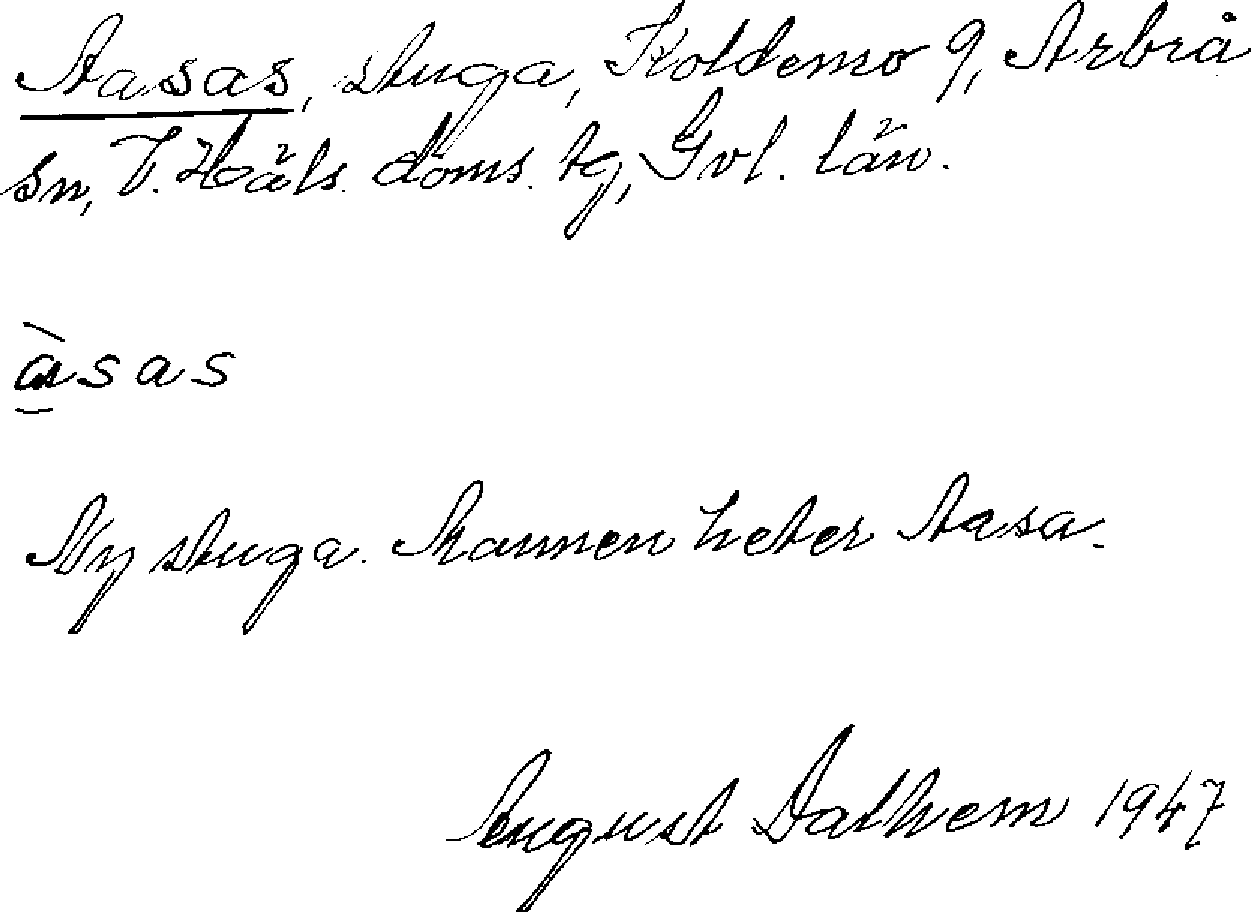 Aasas, stuga, Koldemo 9, Arbrå
sn, V. Häls. doms. tg, Gvl. län.
àsas
Ny stuga. Mannen heter Aasa.
August Dalhem 1947